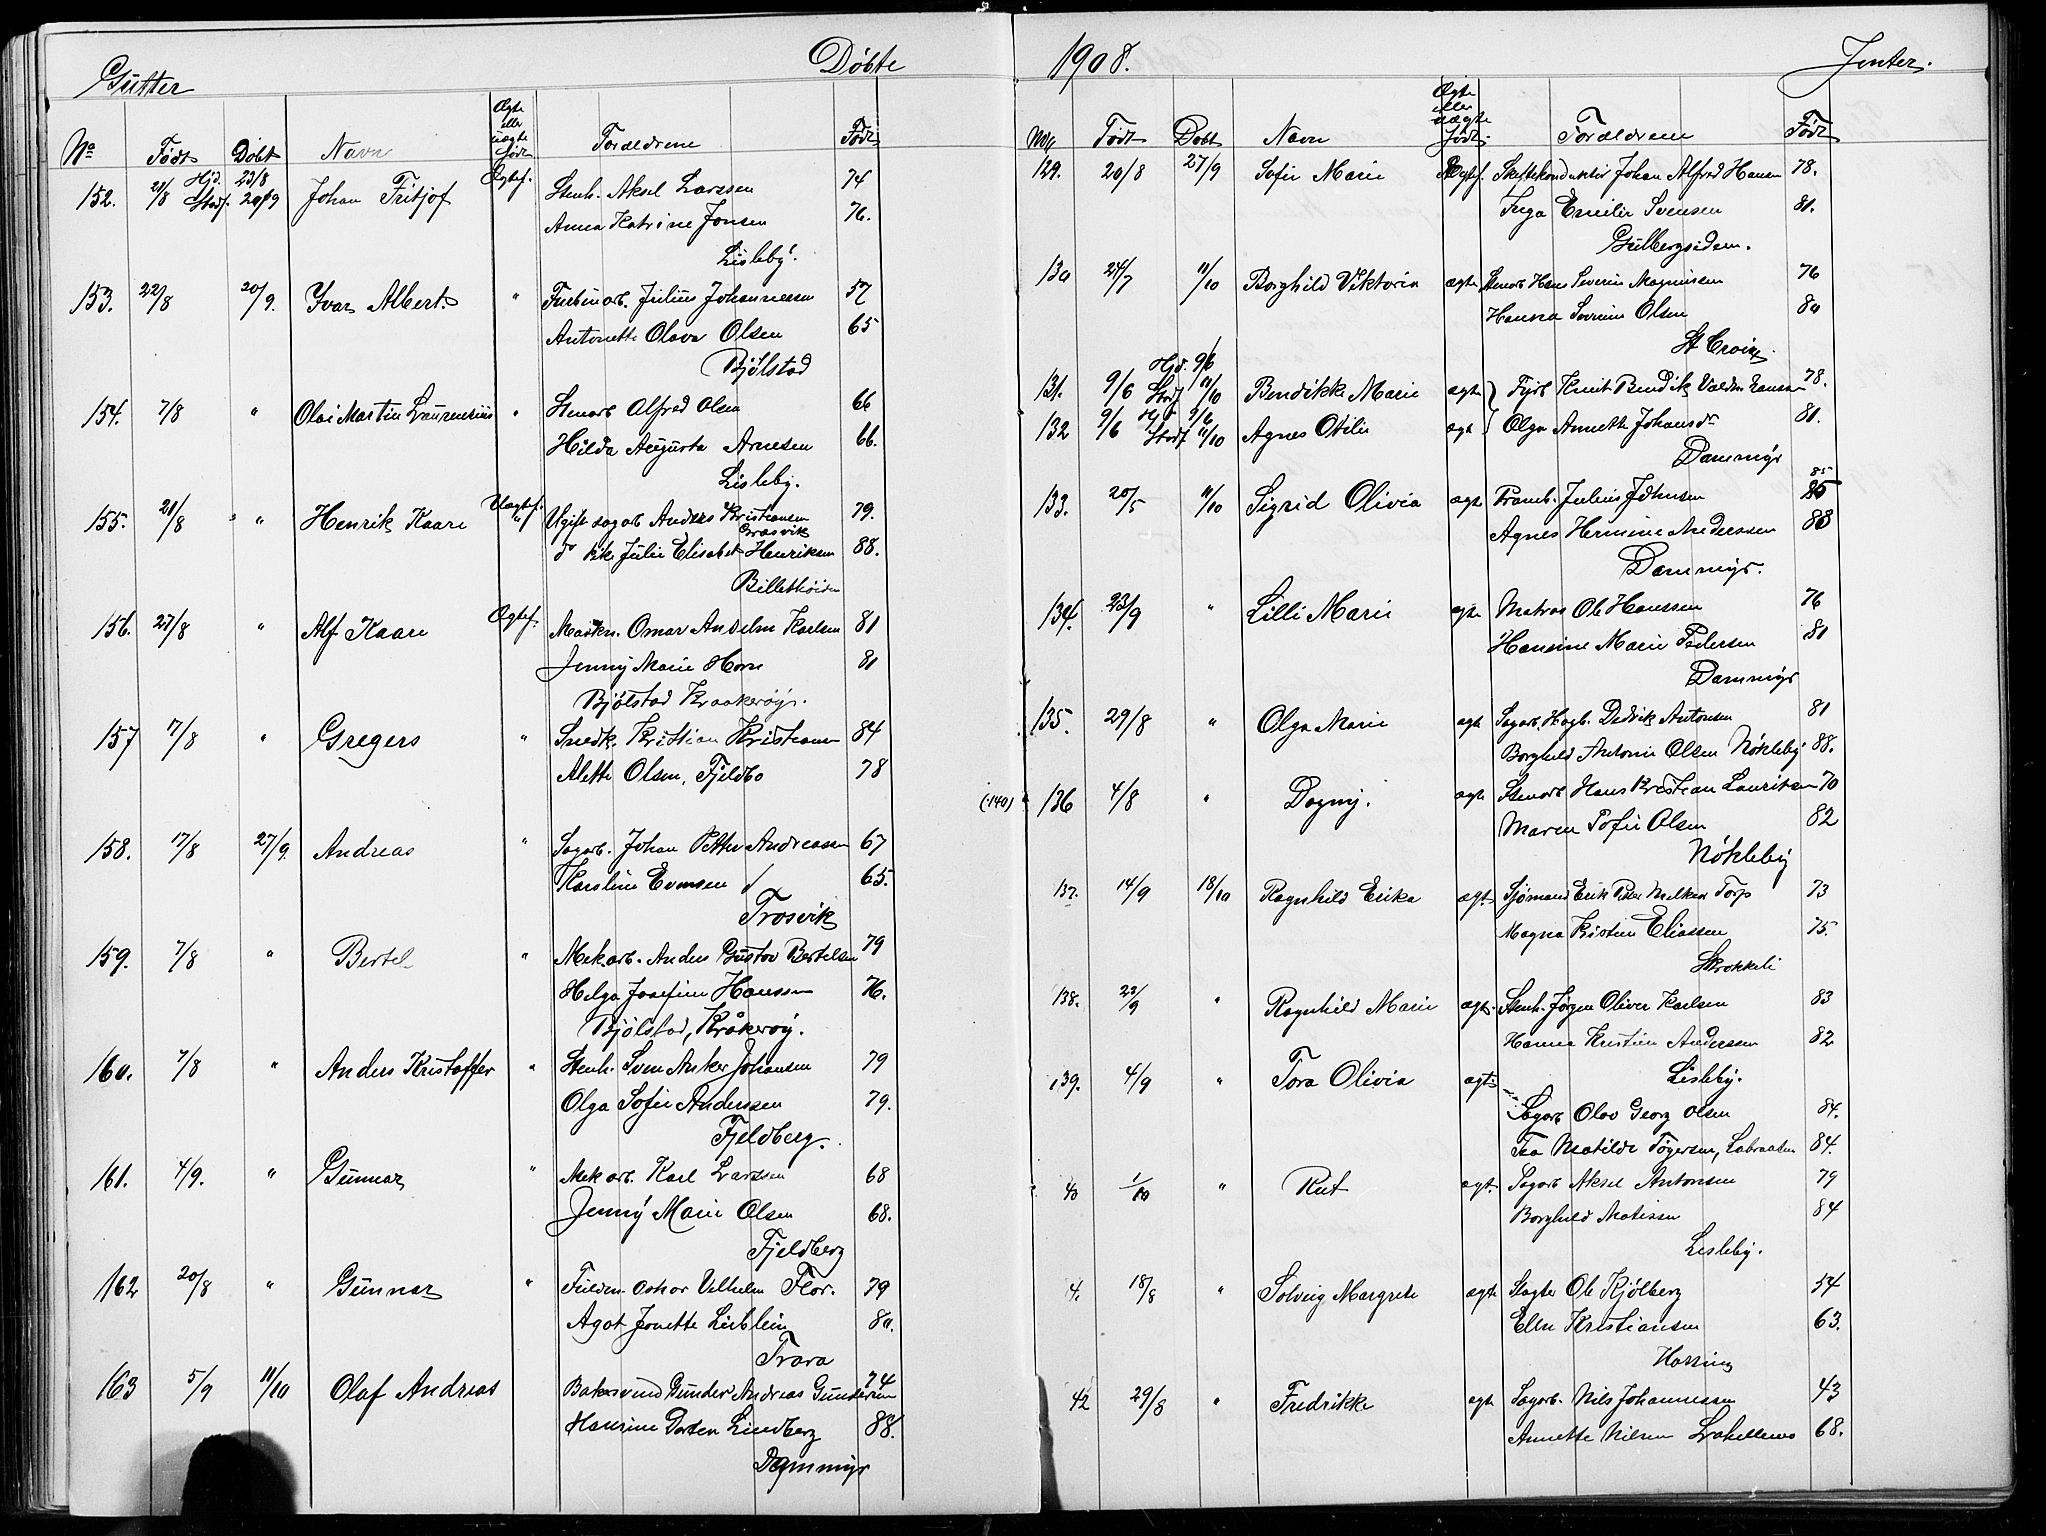 Gutter
Døbte
No Født Døbt Navn Ægte eller uægte født Forældrene Født
152. 21/8 Hjd. 23/8 Stadf. 20/9 Johan Fritjof Ægtef. Stenh. Aksel Larssen 74
Anna Katrine Jonsen 76.
Lisleby.
153. 22/8 20/9. Ivar Albert " Julius Johannessen 57
Antonette Olava Olsen 65
Bjølstad
154. 7/8 " Olai Martin Laurensius " Stenarb Alfred Olsen 66
Hilda Augusta Arnesen 66.
Lisleby.
155. 21/8 " Henrik Kaare Uægtef. Ugift sagarb Anders Kristiansen Græsvik 79.
do pike Julie Elisabet Henriksen 88.
156. 27/8 " Alf Kaare Ægtef. Maskn. Omar Anshelm Karlsen 81
Jenny Marie Horn 81
Bjølstad Kraakerøy.
157 7/8 " Gregers " Snedk. Kristian Kristiansen 84
Alette Olsen, Fjeldbo 78
158. 17/8 27/9. Andreas " Sagarb. Johan Petter Andreassen 67
Karoline Evensen 65.
Trosvik
159. 7/8 " Bertel " Mekarb. Anders Gustav Bertelsen 79
Helga Josefine Hanssen 76.
Bjølstad, Kråkerøy.
160. 7/8 " Anders Kristoffer " Stenh. Sven Anker Johansen 79
Olga Sofie Anderssen 79.
Fjeldberg.
161. 4/9. " Gunnar " Mekarb. Karl Larssen 68
Jenny Marie Olsen 68.
Fjeldberg
162 20/8 " Gunnar " Oskar Vilhelm Flor. 79
Agot Jonette Lieblein 80.
Trara
163 5/9 11/10 Olaf Andreas Bakersvend Gunder Andreas Gundersen 74
Hansine Dorten Lindberg 88.
Dammyr
1908.
Jenter.
No Født Døbt Navn Ægte eller uægte født Forældrene Født
129. 20/8 27/9 Sofie Marie Ægtef. Skiftekonduktør Johan Alfred Hansen 78.
Inga Emilie Svensen 81.
Gulbergsiden.
130 24/7 11/10 Borghild Viktoria ægte Stenarb Hans Severin Magnussen 76
Hanna Severine Olsen 80
St Croix.
131. 9/6 Hjd. 9/6 Stadf 11/10 Bendikke Marie ægte } Fyrb Knut Bendik Valdm Hanssen 78.
132 9/6 Hjd 9/6 Stadf 11/10 Agnes Otilie ægte } Olga Annette Johansdr 81.
Dammyr
133. 20/5 11/10 Sigrid Olivia ægte Framb. Julius Johnsen 85
Agnes Hermine Anderssen 88
Dammyr.
134. 23/9 " Lilli Marie ægte Matros Ole Hanssen 76
Hansine Marie Pedersen 81
Dammyr
135. 29/8 " Olga Marie ægte Sagarb. Hagb. Didrik Antonsen 81
Borghild Antonie Olsen Nøkleby 88.
(140) 136 4/8 " Dagny. ægte Stenarb Hans Kristian Lauritsen 70
Maren Sofie Olsen 82
Nøkleby
137. 14/9 18/10 Ragnhild Erika ægte Sjømand Erik Peter Torp 73
Magna Kristine Eliassen 75.
138. 23/9 " Ragnhild Marie ægte. Stenh. Jørgen Oliver Karlsen 83
Hanna Kristine Anderssen 82
Lisleby.
139. 4/9 " Tora Olivia ægte Sagarb Olav Georg Olsen 84.
Tea Matilde Tøgersen, Labraaten 84.
40 1/10 " Rut ægte. Sagarb Aksel Antonsen 79
Borghild Matissen 84
Lisleby.
4. 18/8 " Solveig Margrete ægte Slagter Ole Kjølberg 54
Ellen Kristiansen 63.
Hassing
42 29/8 " Fredrikke ægte Sagarb. Nils Johannessen 43
Annette Nilsen 68.